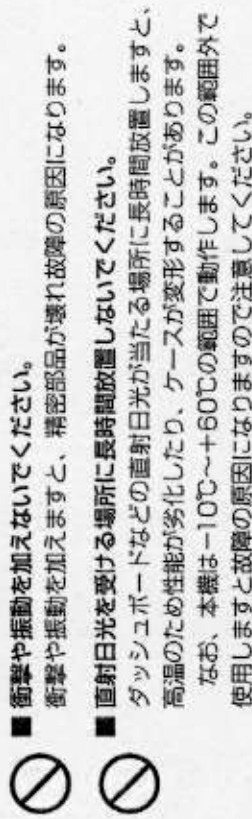 ■ 衝撃や振動を加えないでください。
衝撃や振動を加えますと、精密部品が壊れ故障の原因になります。
■ 直射日光を受ける場所に長時間放置しないでください。
ダッシュボードなどの直射日光が当たる場所に長時間放置しますと、
高温のため性能が劣化したり、ケースが変形することがあります。
なお、本機は−10℃～＋60℃の範囲で動作します。この範囲外で
使用しますと故障の原因になりますので注意してください。